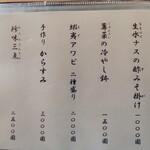 生水ナスの酢みそ掛け 一〇〇〇円
蓴菜の冷やし鉢 一五〇〇円
アワビ二種盛り 二〇〇〇円
手作りからすみ 二〇〇〇円
珍味三点 二五〇〇円